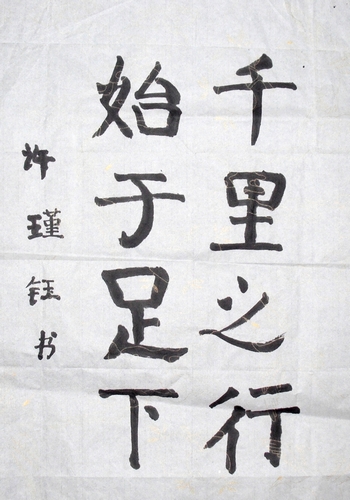 千里之行
始于足下
许瑾钰书